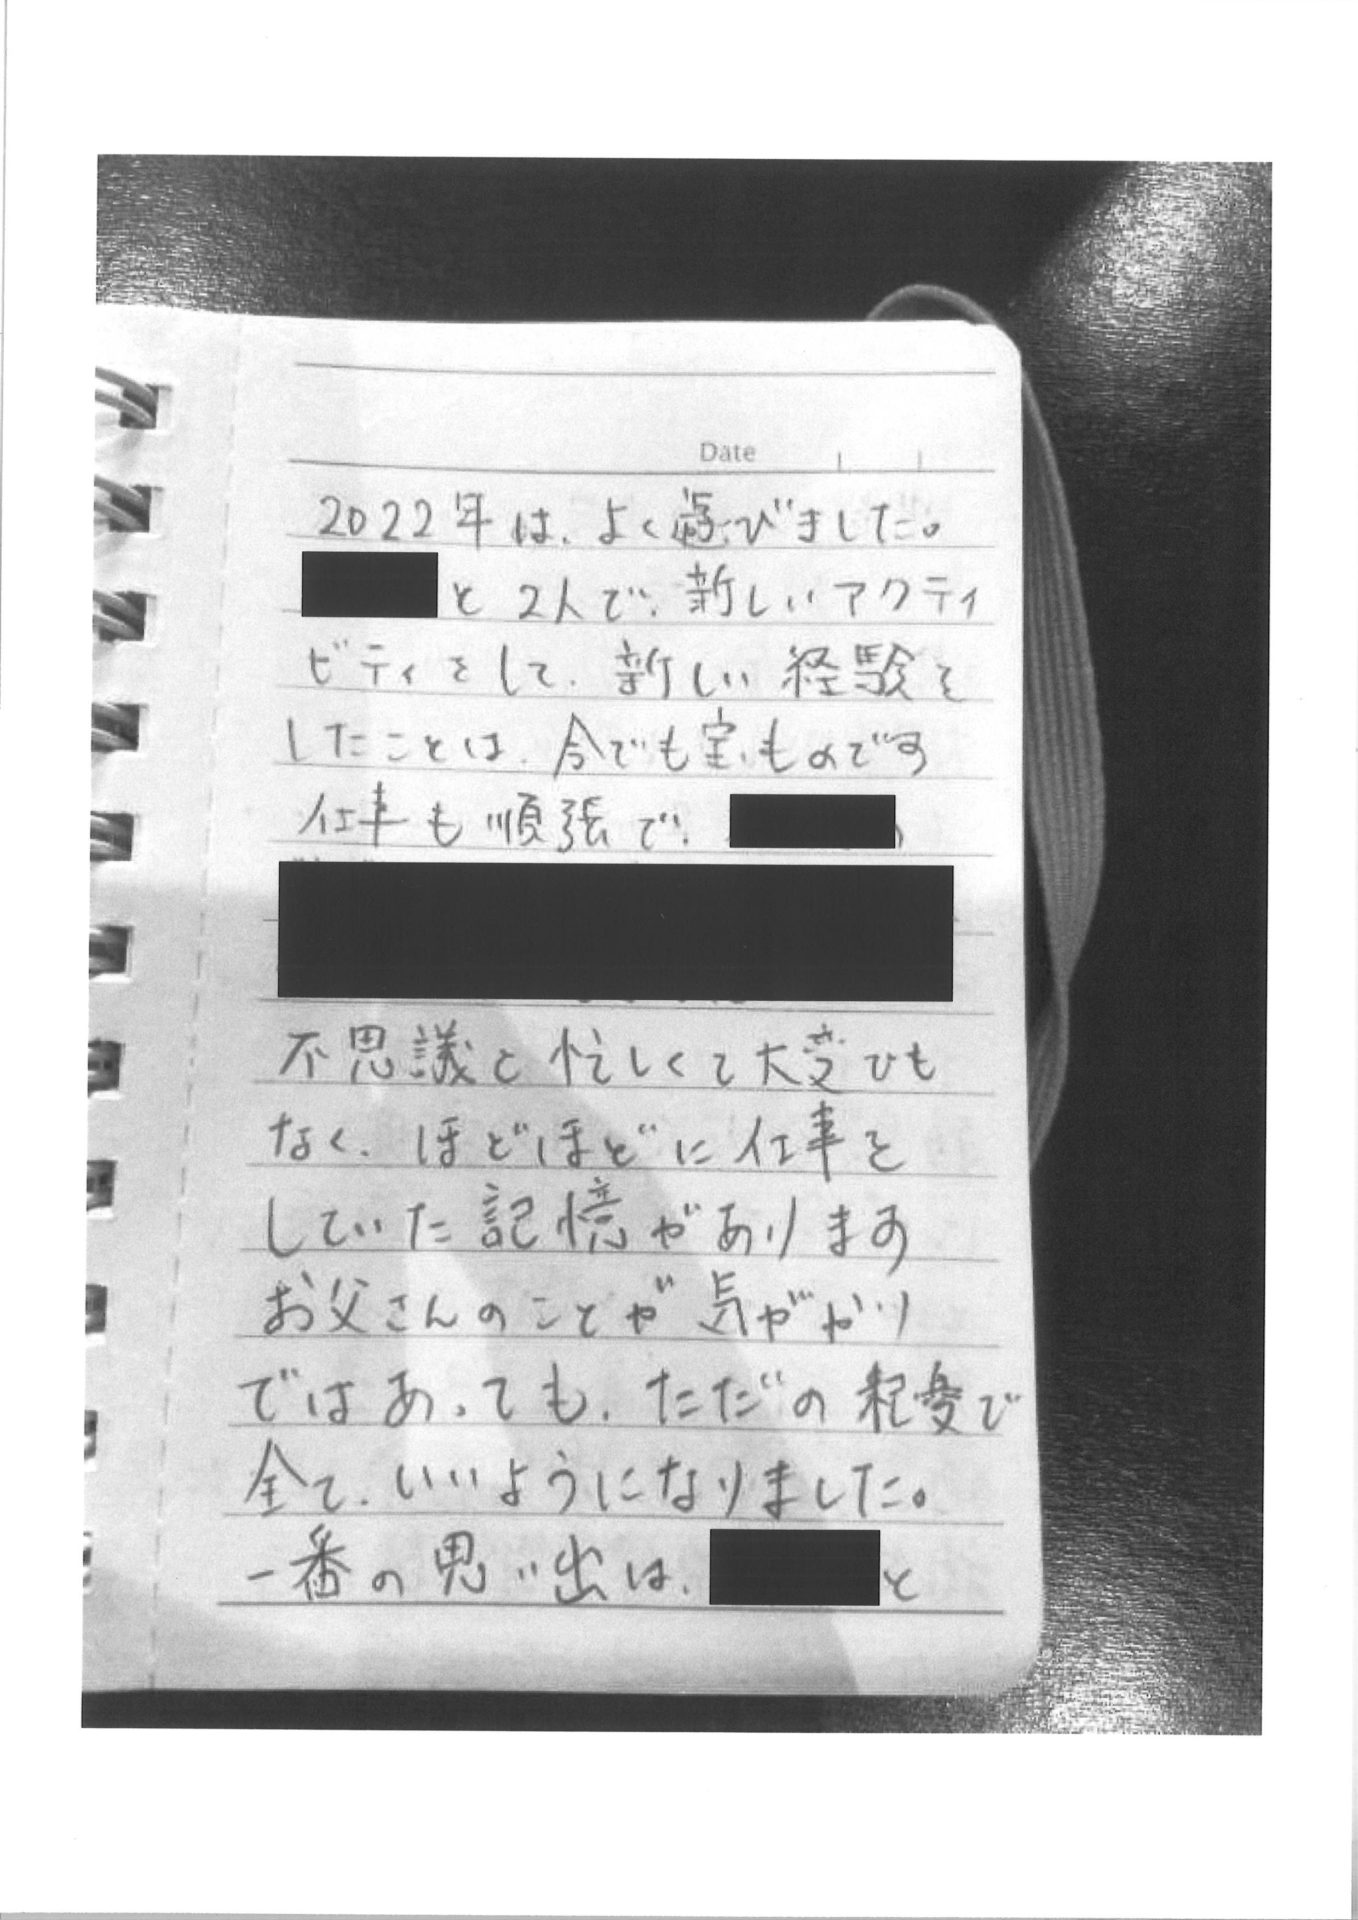 Date
2022年は、よく遊びました。
と2人で、新しいアクティ
ビティをして、新しい経験を
したことは、今でも宝ものです
仕事も順張で、
不思議と忙しくて大変ひも
なく、ほどほどに仕事を
していた記憶があります
お父さんのことが気ががり
ではあっても、ただの
全て、いいようになりました。
一番の思い出は、と